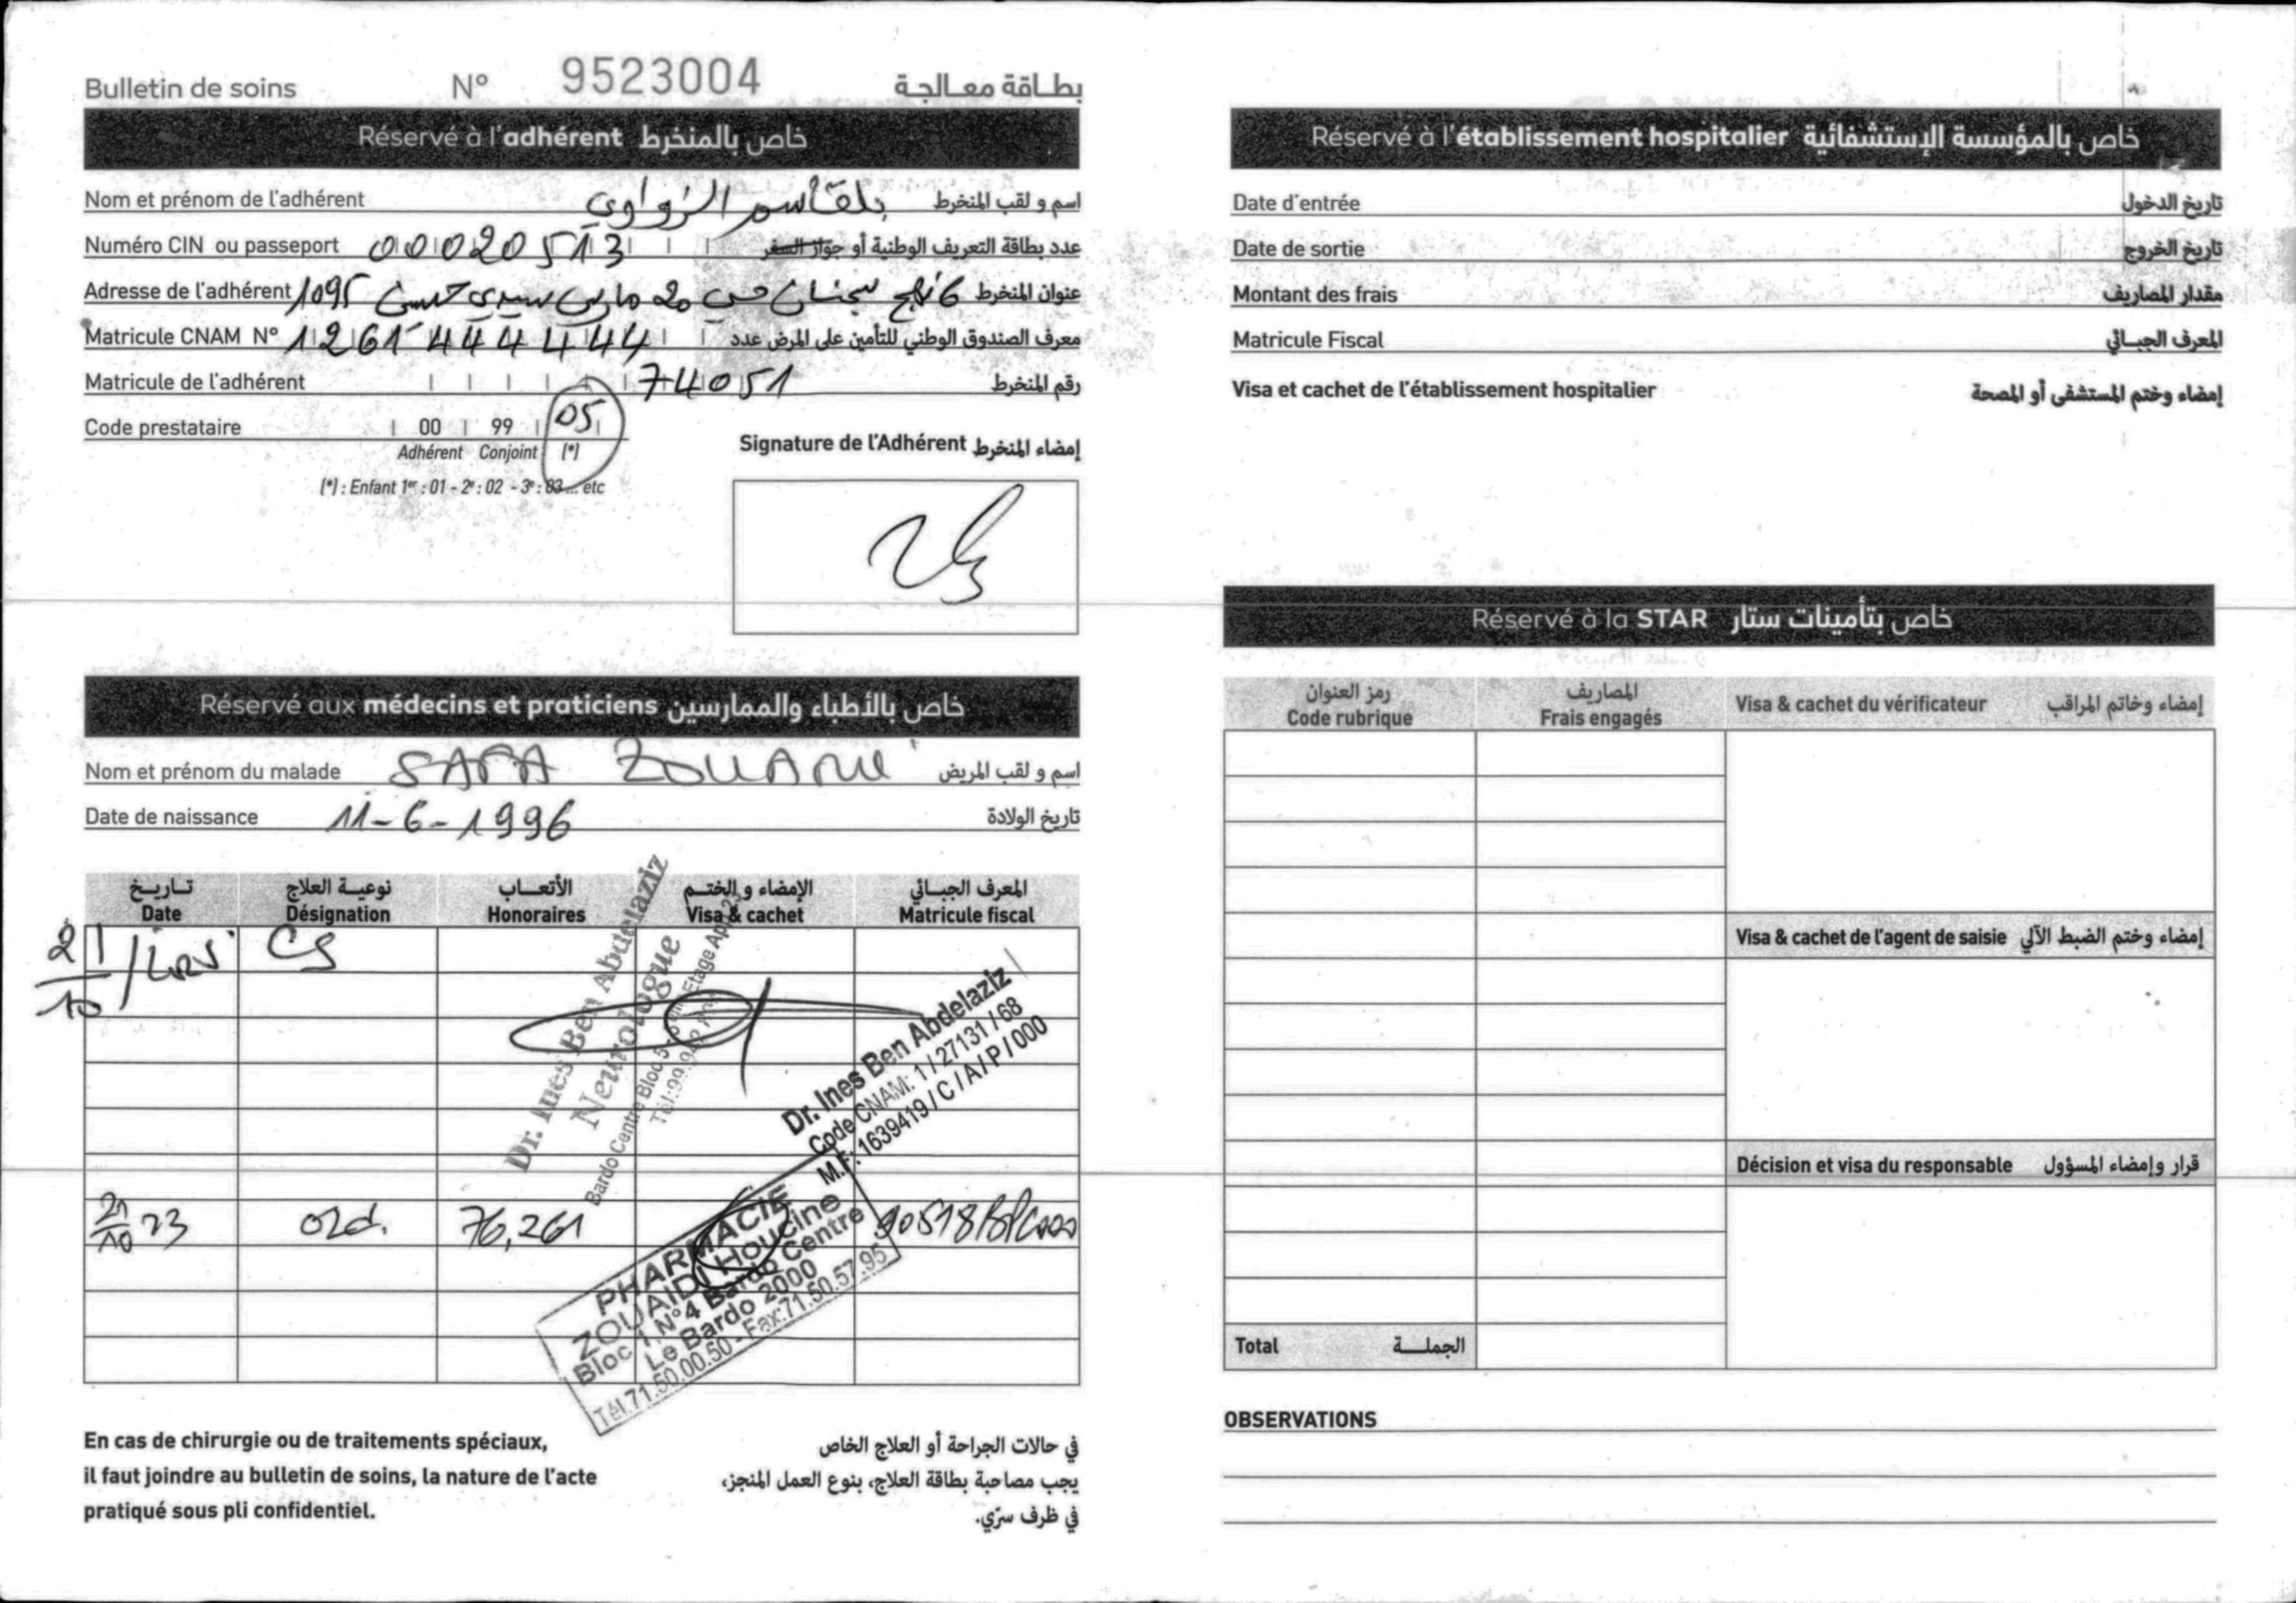 Bulletin de soins N° 9523004 بطاقة معالجة
Réservé à l'adhérent خاص بالمنخرط
Nom et prénom de l'adhérent بلقاسم الزواوي اسم و لقب المنخرط
Numéro CIN ou passeport 00020513 عدد بطاقة التعريف الوطنية أو جواز السفر
Adresse de l'adhérent 1095 6 نهج سجنان حي 20 مارس سيدي حسين عنوان المنخرط
Matricule CNAM N° 1261444444 معرف الصندوق الوطني للتأمين على المرض عدد
Matricule de l'adhérent 74051 رقم المنخرط
Code prestataire 00 99 05
Adhérent Conjoint (*)
(*) : Enfant 1er : 01 - 2e : 02 - 3e : 03 ... etc
Signature de l'Adhérent إمضاء المنخرط
Réservé aux médecins et praticiens خاص بالأطباء والممارسين
Nom et prénom du malade SAFA ZOUAOUI اسم و لقب المريض
Date de naissance 11-6-1996 تاريخ الولادة
تاريخ نوعية العلاج الأتعاب الإمضاء و الختم المعرف الجبائي
Date Désignation Honoraires Visa & cachet Matricule fiscal
21/10 CS
Dr. Ines Ben Abdelaziz
Neurologue
Bardo Centre Bloc 5 Etage App
Dr. Ines Ben Abdelaziz
Code CNAM: 1 / 27131 / 68
M.F: 1639419 / C / A / P / 000
21/10 23 ord. 76,261
PHARMACIE
ZOUAIDI Houcine
Bloc 1 N°4 Bardo Centre
Le Bardo 2000
Tél.71.50.00.50 - Fax:71.50.57.95
En cas de chirurgie ou de traitements spéciaux,
il faut joindre au bulletin de soins, la nature de l'acte
pratiqué sous pli confidentiel.
في حالات الجراحة أو العلاج الخاص
يجب مصاحبة بطاقة العلاج، بنوع العمل المنجز،
في ظرف سرّي.
Réservé à l'établissement hospitalier خاص بالمؤسسة الإستشفائية
Date d'entrée تاريخ الدخول
Date de sortie تاريخ الخروج
Montant des frais مقدار المصاريف
Matricule Fiscal المعرف الجبائي
Visa et cachet de l'établissement hospitalier إمضاء وختم المستشفى أو المصحة
Réservé à la STAR خاص بتأمينات ستار
رمز العنوان المصاريف
Code rubrique Frais engagés Visa & cachet du vérificateur إمضاء وخاتم المراقب
Visa & cachet de l'agent de saisie إمضاء وختم الضبط الآلي
Décision et visa du responsable قرار وإمضاء المسؤول
Total الجملة
OBSERVATIONS